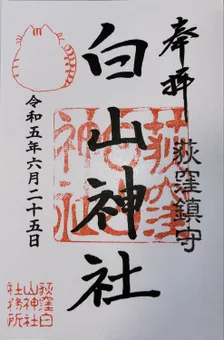 奉拝
荻窪鎮守
白山神社
荻窪
神社
令和五年六月二十五日
荻窪白
山神社
社務所